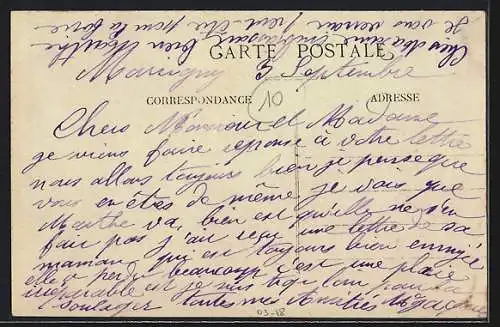 CARTE POSTALE
Marigny 3 Septembre
CORRESPONDANCE
10
ADRESSE
Chers Monsieur et Madame
je viens faire reponse à votre lettre
nous allons toujours bien je pense que
vous en êtes de même je vois que
Marthe va bien est qu'elle ne s'en
fait pas j'ait reçu une lettre de sa
maman qui est toujours bien ennuyé
elle a perdu beaucoup c'est une plaie
inséparable est je suis trop loin pour la
soulager toutes mes Amitiés
Chers Marraine
Je vous verrair peut-être pour la foire
bien Marthe
03-18